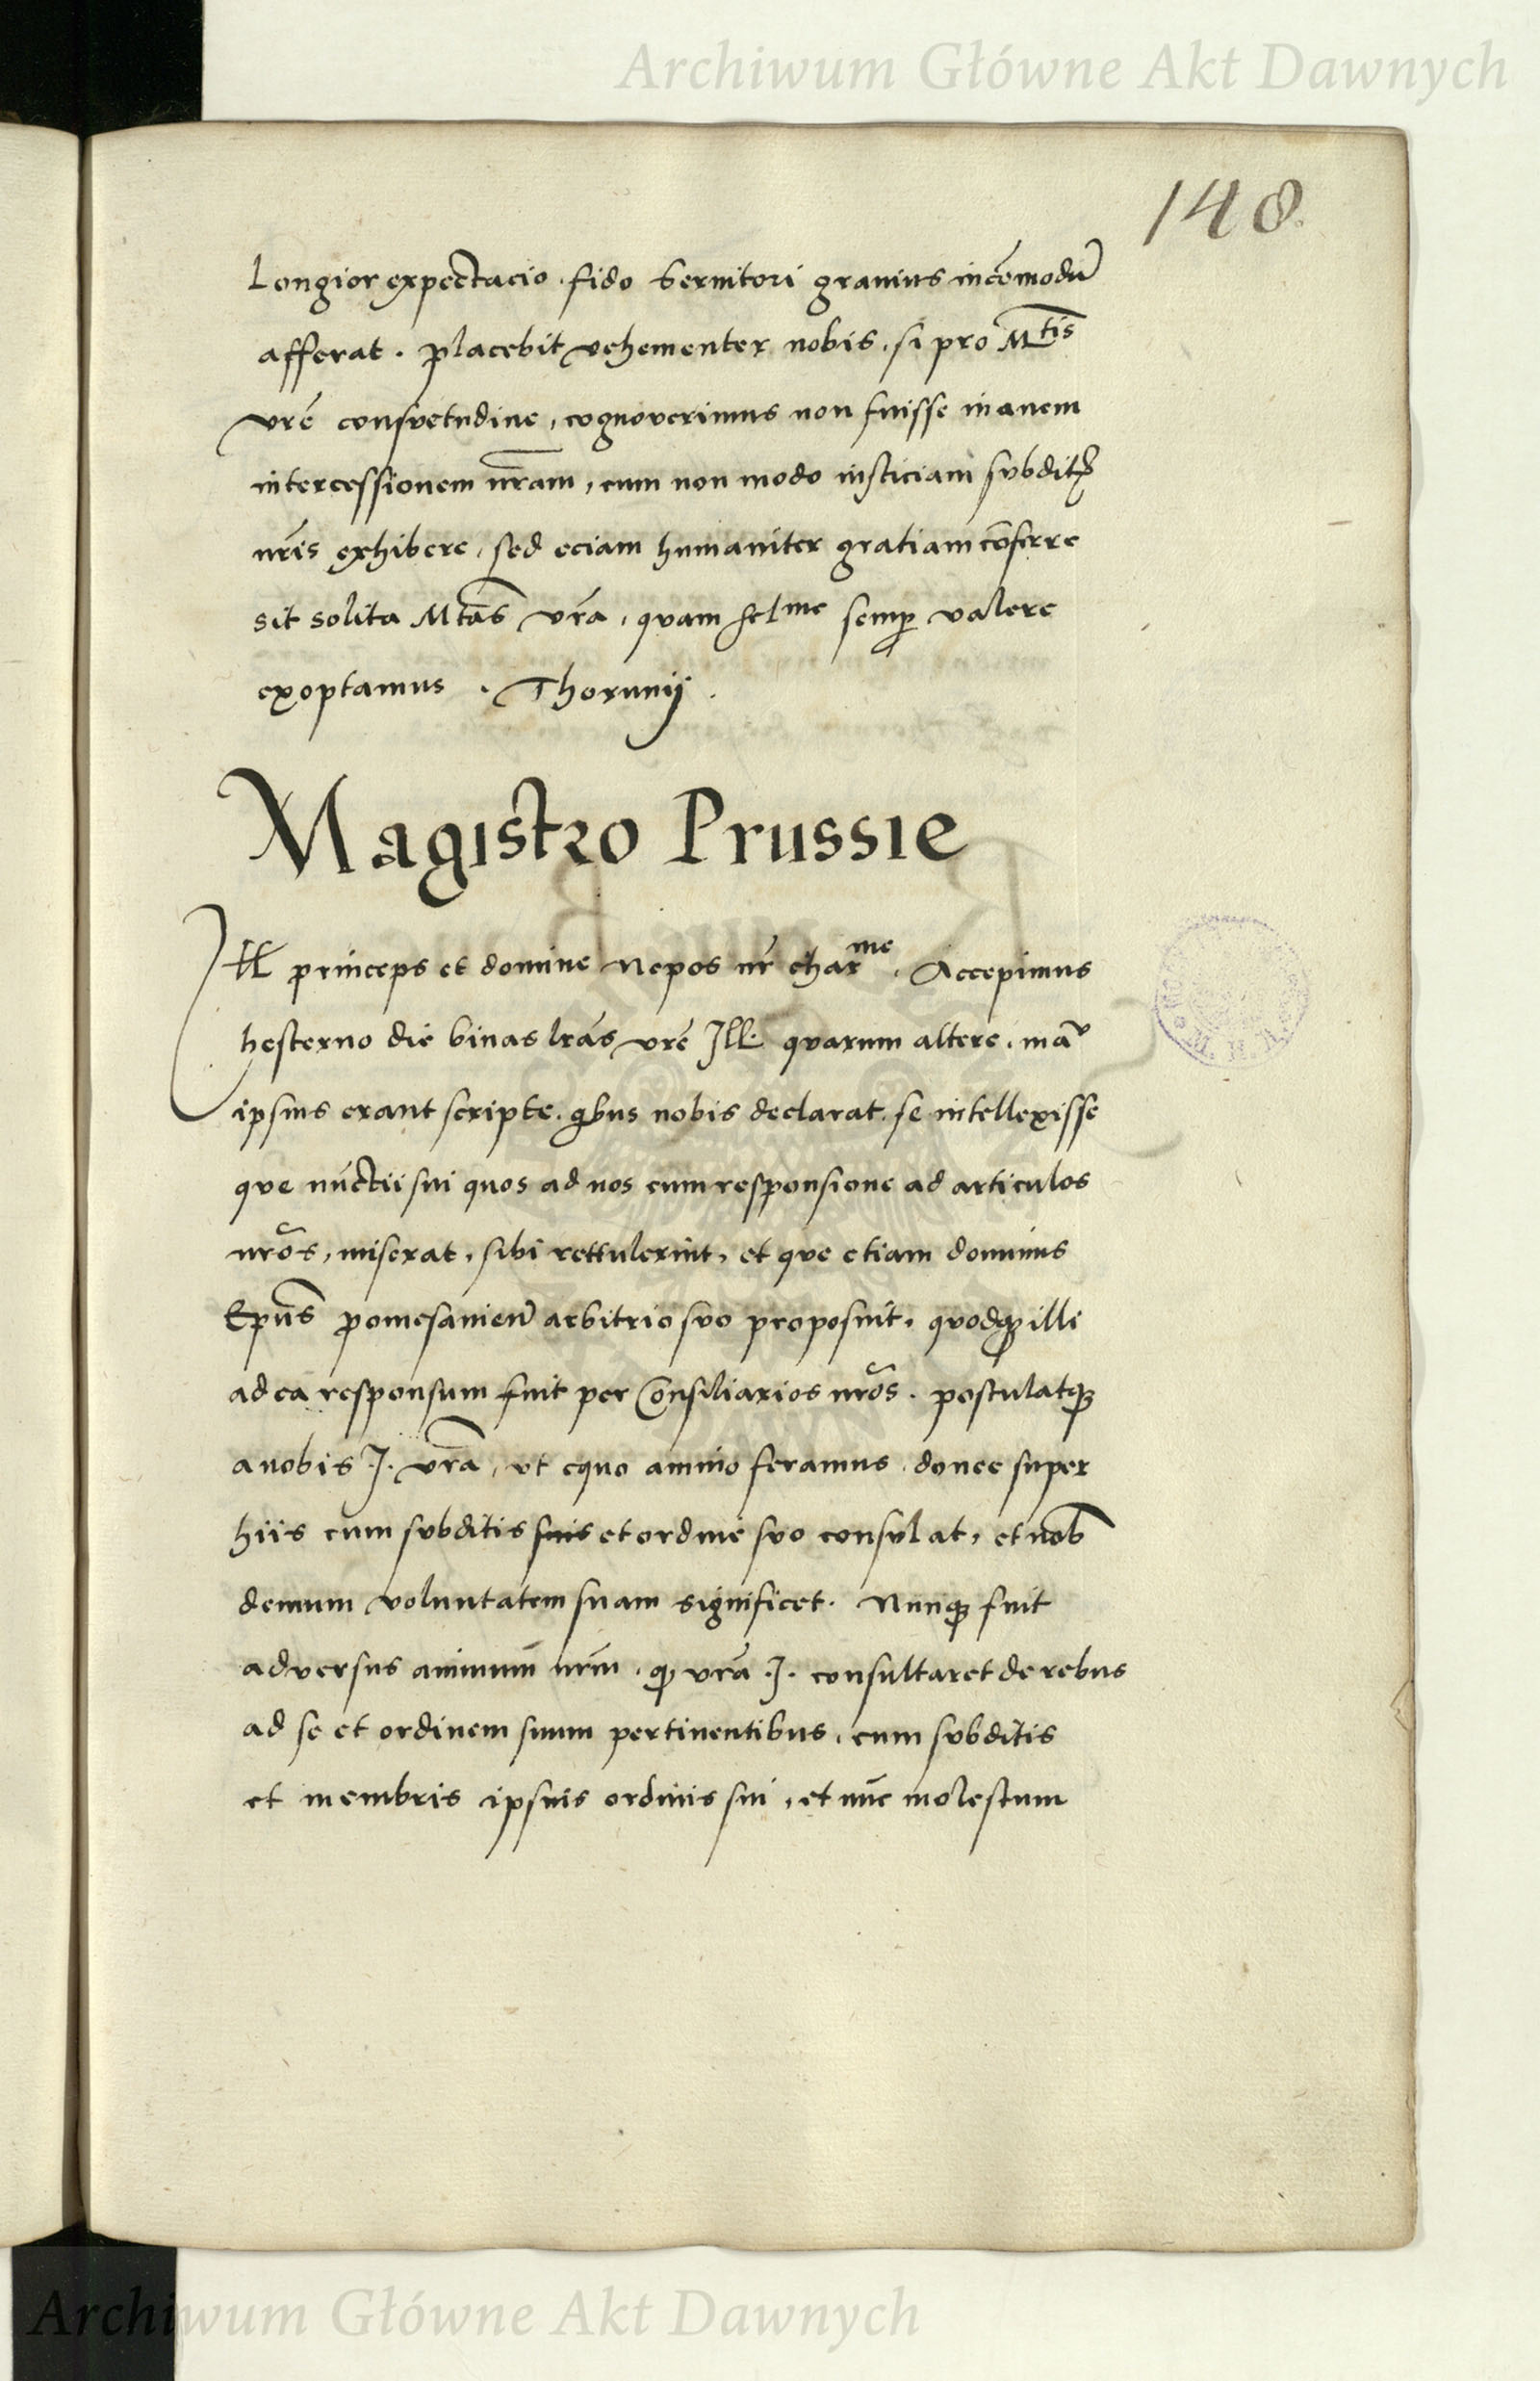 Archiwum Główne Akt Dawnych
148.
Longior expectacio . fido servitori gravius incōmodū
afferat . placebit vehementer nobis . si pro Mtis
vrē consvetudine , cognoverimus non fuisse inanem
intercessionem nrām , cum non modo iusticiam svbdit
nrīs exhibere , sed eciam humaniter gratiam cōferre
sit solita Mtās vrā , qvam fel me semp valere
exoptamus . Thorunij .
Magistro Prussie
Ill princeps et domine Nepos nr̄ char me . Accepimus
hesterno die binas lrās vrē Ill. qvarum altere . mā
ipsius erant scripte . qbus nobis declarat . se intellexisse
qve nūctii sui quos ad nos cum responsione ad articulos
nrōs , miserat , sibi rettulerint , et qve etiam dominus
Epūs pomesanien arbitrio svo proposuit . qvodq illi
ad ea responsum fuit per Consiliarios nrōs . postulatq
a nobis .J. vrā , vt equo animo feramus . donec super
hiis cum svbditis suis et ordine svo consvlat , et nob
demum voluntatem suam significet . Nunq fuit
adversus animum nrm̄ . q vrā .J. consultaret de rebus
ad se et ordinem suum pertinentibus , cum svbditis
et membris ipsius ordinis sui , et nūc molestum
Archiwum Główne Akt Dawnych